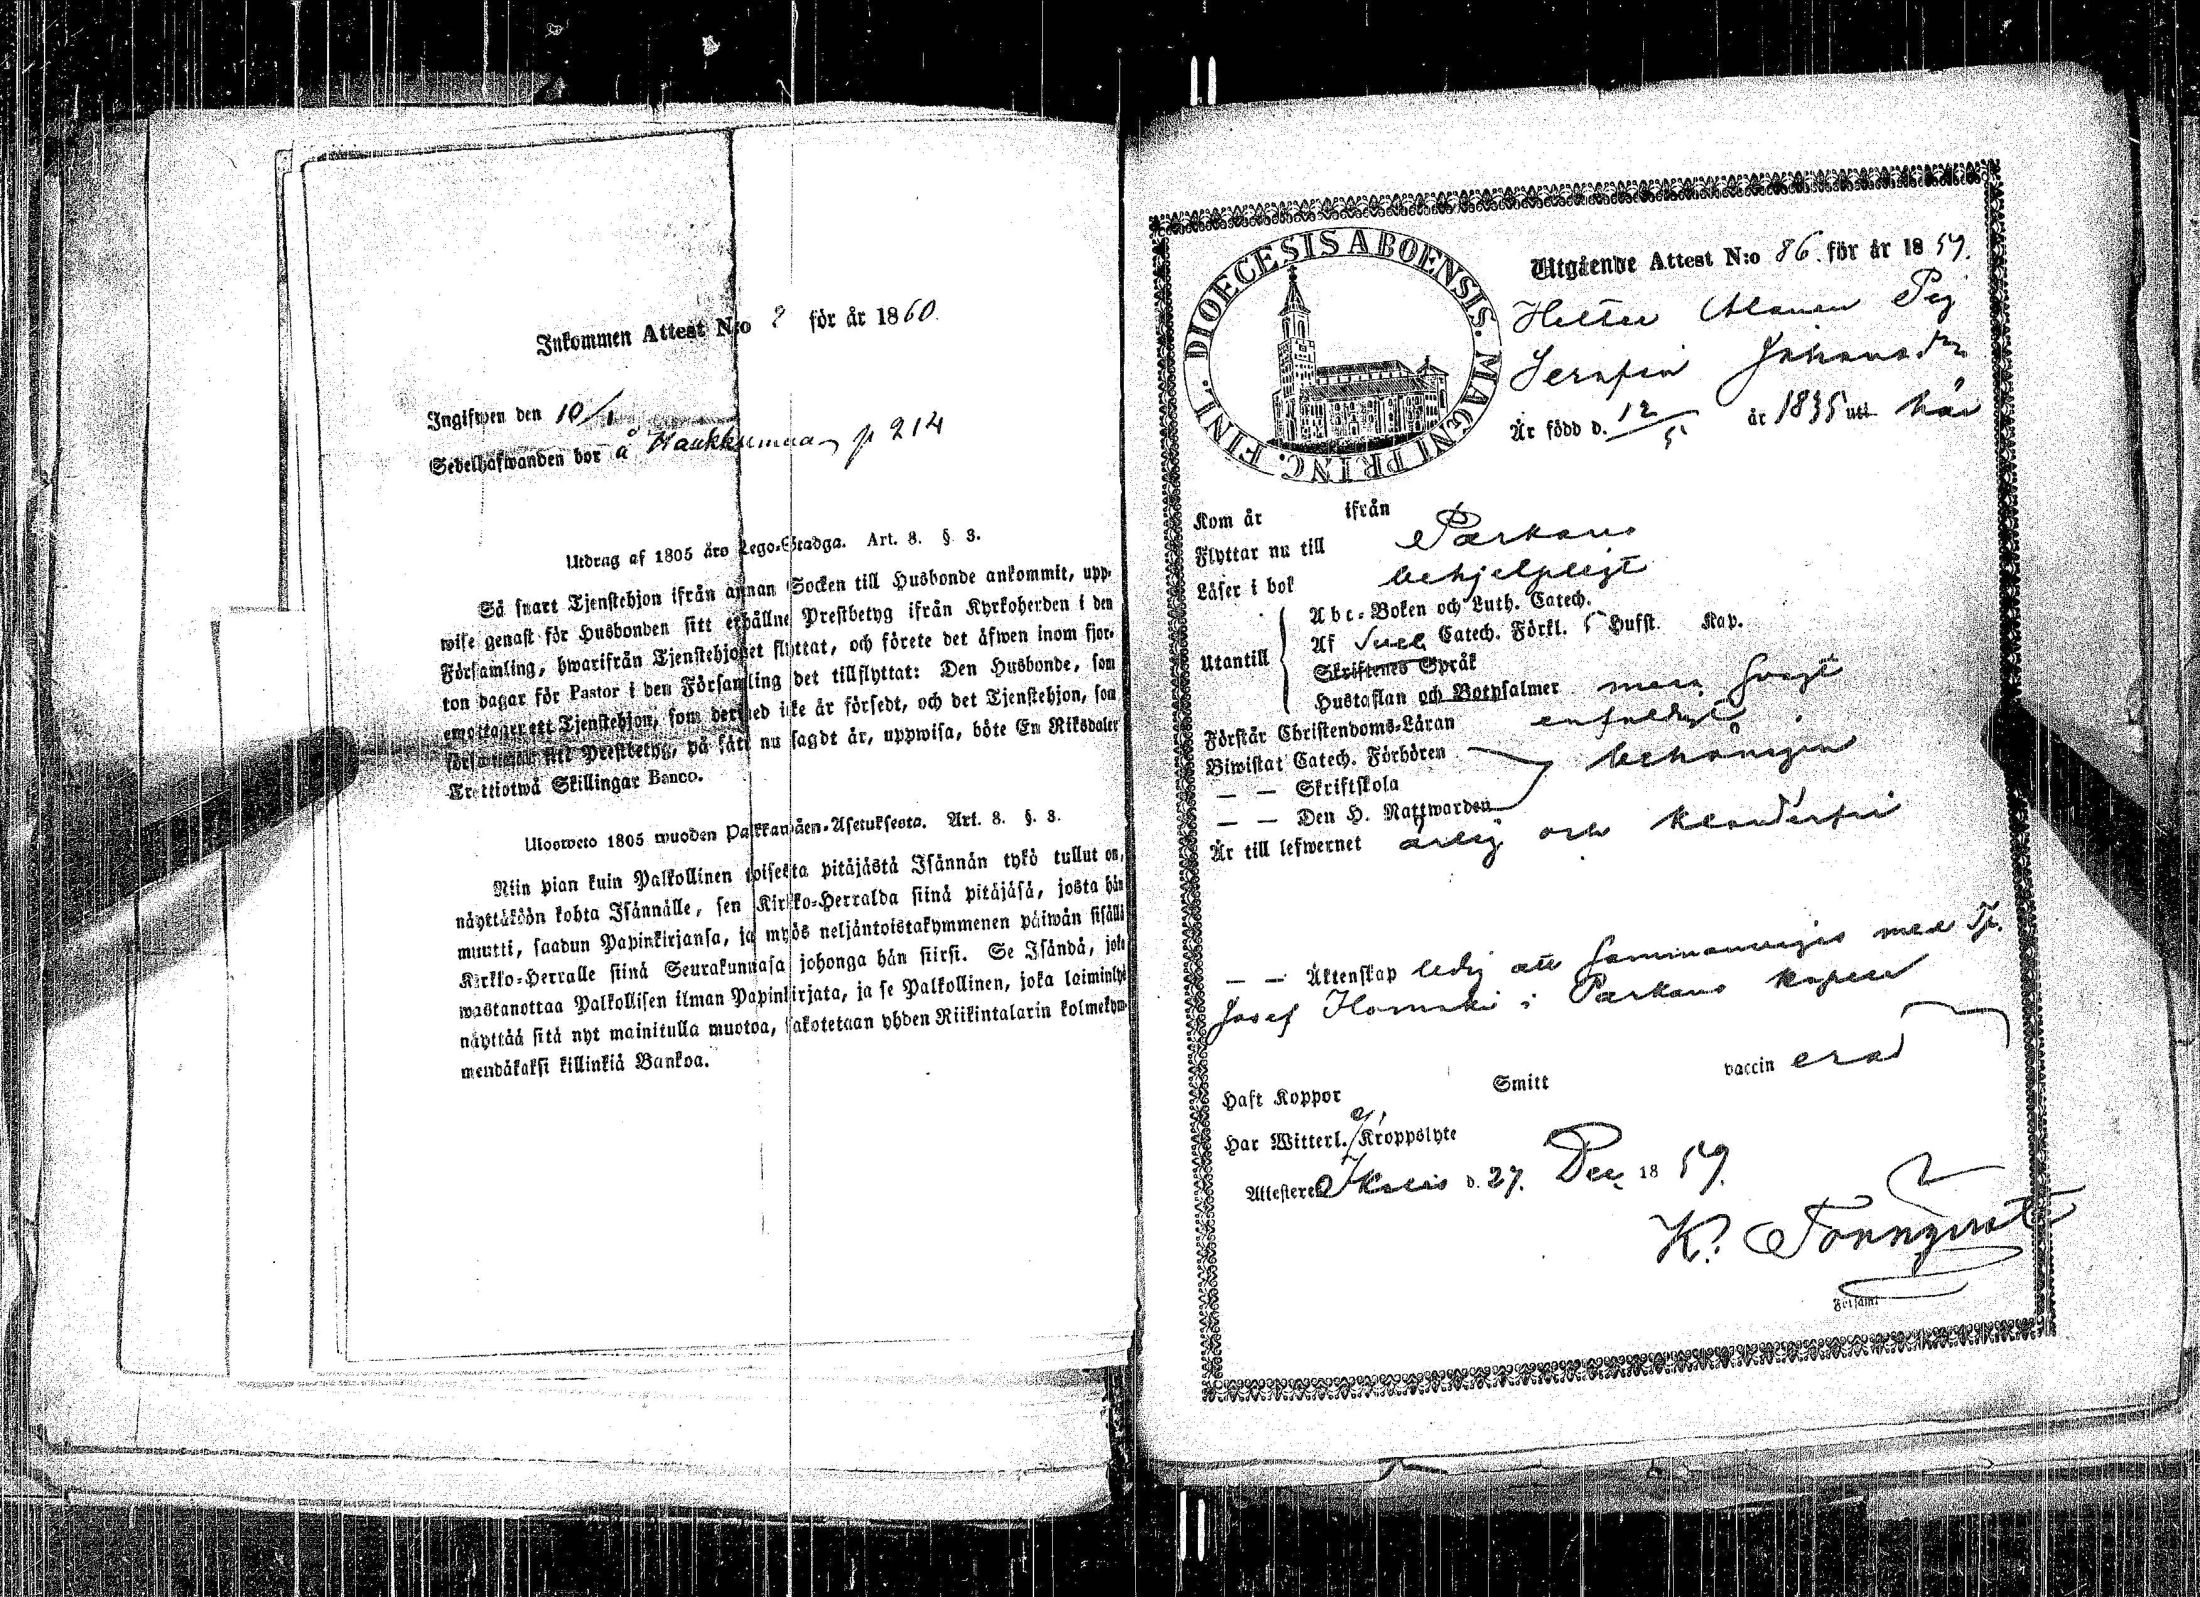 Inkommen Attest N:o 2 för år 1860.
Ingifwen den 10/1
Sedelhafwanden bor å Haukkumaa p 214
Utdrag af 1805 års Lego-Stadga. Art. 8. § 3.
Så snart Tjenstehjon ifrån annan Socken till Husbonde ankommit, upp-
wise genast för Husbonden sitt erhållne Prestbetyg ifrån Kyrkoherden i den
Församling, hwarifrån Tjenstehjonet flyttat, och förete det äfwen inom fjor-
ton dagar för Pastor i den Församling det tillflyttat: Den Husbonde, som
emottager ett Tjenstehjon, som dermed icke är försedt, och det Tjenstehjon, som
försummar sitt Prestbetyg, på sätt nu sagdt är, uppwisa, böte En Riksdaler
Trettiotwå Skillingar Banco.
Ulosweto 1805 wuoden Palkkawäen-Asetuksesta. Art. 8. §. 3.
Niin pian kuin Palkollinen toisesta pitäjästä Isännän tykö tullut on,
näyttäköön kohta Isännälle, sen Kirkko-Herralda siinä pitäjäsä, josta hän
muutti, saadun Papinkirjansa, ja myös neljäntoistakymmenen päiwän sisällä
Kirkko-Herralle siinä Seurakunnasa johonga hän siirsi. Se Isändä, joka
wastanottaa Palkollisen ilman Papinkirjata, ja se Palkollinen, joka laiminlyö
näyttää sitä nyt mainitulla muotoa, sakotetaan yhden Riikintalarin kolmekym-
mendäkaksi killinkiä Bankoa.
DIOECESIS ABOENSIS. MAGNI PRINC. FINL.
Utgående Attest N:o 86. för år 1859.
Alanen Pig
Serafia Johansdr
Är född d. 12/5 år 1835 uti här
Kom år ifrån
Flyttar nu till Parkano
Läser i bok behjelpligt
Utantill
Abc-Boken och Luth. Catech.
Af Sveb. Catech. Förkl. 5 Hufst. Kap.
Skriftenes Språk
Hustaflan och Botpsalmer svagt
Förstår Christendoms-Läran enfaldigt
Biwistat Catech. Förhören behörigen
— — Skriftskola
— — Den H. Nattwarden
Är till lefwernet ärlig och klanderfri
— — Äktenskap ledig att sammanvigas med
Josef i Parkano kapell
Haft Koppor Smitt vaccin erad
Har Witterl. Kroppslyte
Attesterar Ikalis d. 27. Dec. 1859.
K. Tönnqvist
Församl